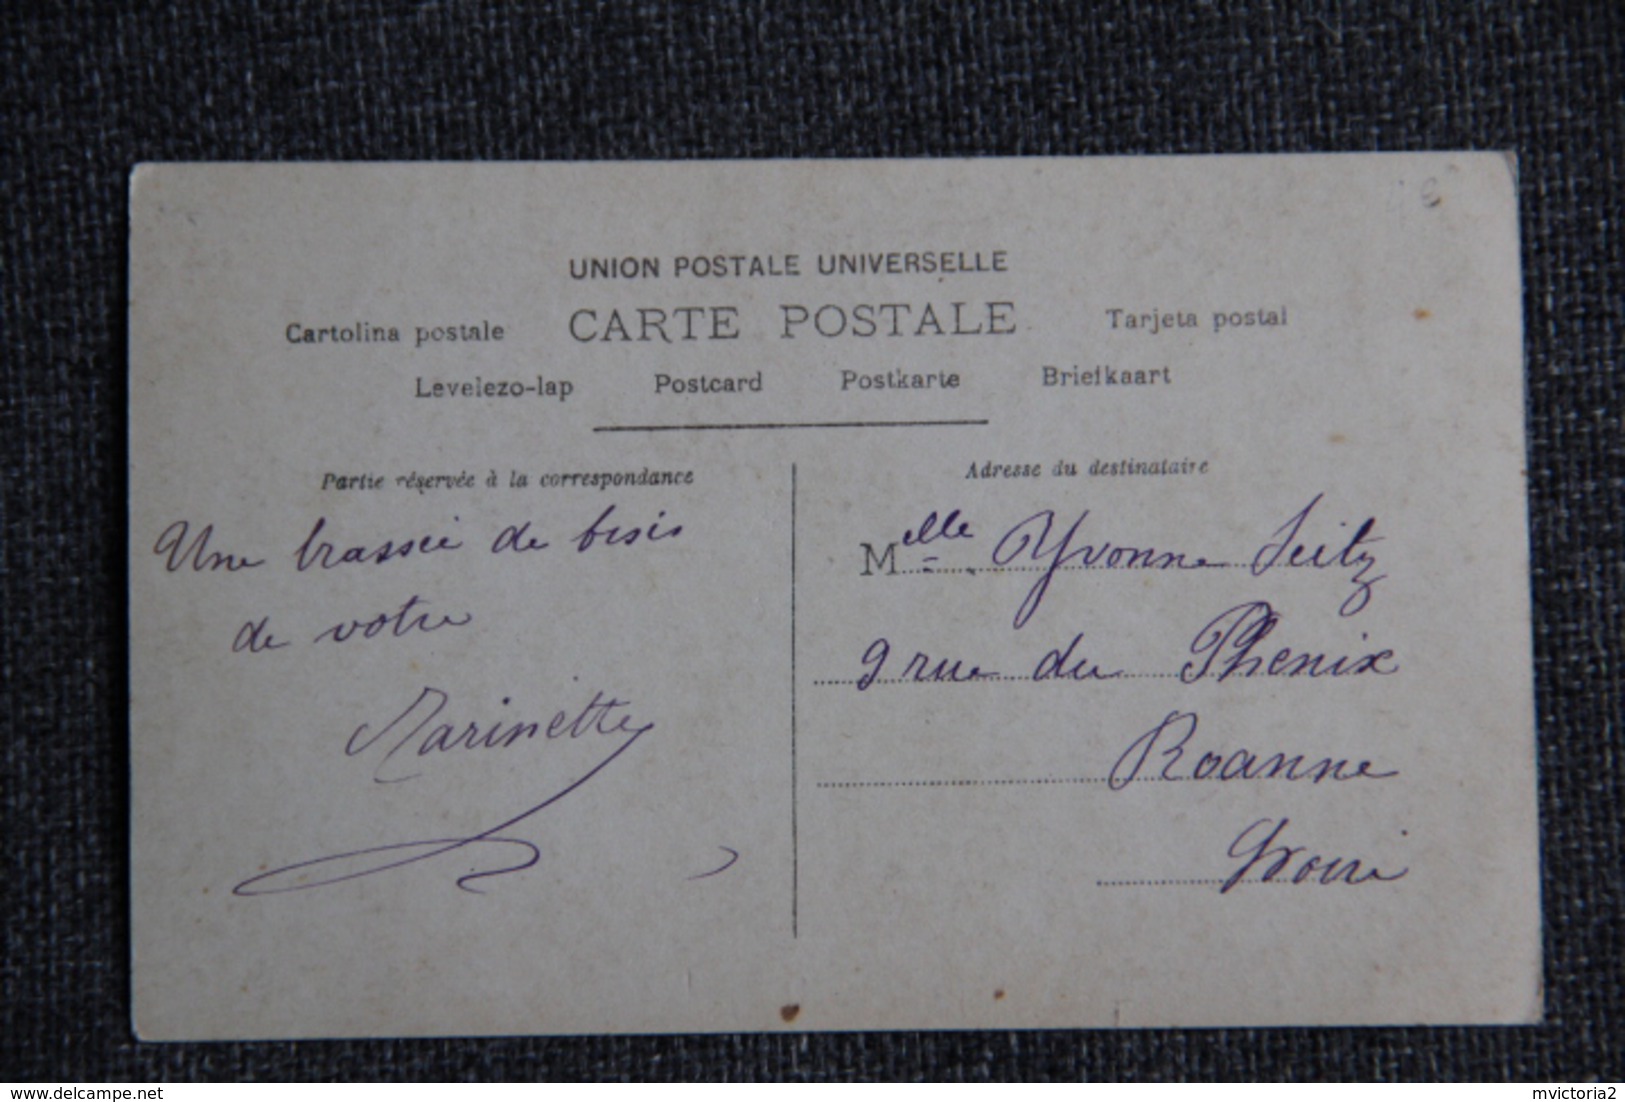 4€
UNION POSTALE UNIVERSELLE
Cartolina postale CARTE POSTALE Tarjeta postal
Levelezo-lap Postcard Postkarte Briefkaart
Partie réservée à la correspondance
Une brassée de bisis
de votre
Marinette
Adresse du destinataire
Melle Yvonne Seitz
9 rue du Phenix
Roanne
Delcampe.net
mvictoria2